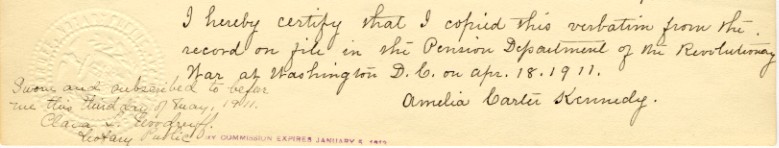 I hereby certify that I copied this verbatim from the.
record on file in the Pension Department of the Revolutionary
War at Washington D.C. on apr. 18. 1911.
Amelia Carter Kennedy.
Sworn and subscribed to before
me this third day of May, 1911.
Clara Woodruff.
Notary Public
MY COMMISSION EXPIRES JANUARY